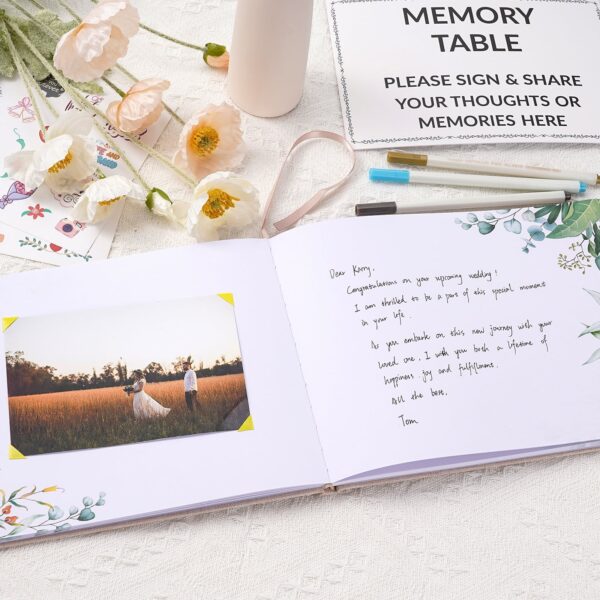 MEMORY
TABLE
PLEASE SIGN & SHARE
YOUR THOUGHTS OR
MEMORIES HERE
Dear Karry,
Congratulations on your upcoming wedding!
I am thrilled to be a part of this special moment
in your life.
As you embark on this new journey with your
loved one, I wish you both a lifetime of
happiness joy and fulfillment.
All the best,
Tom